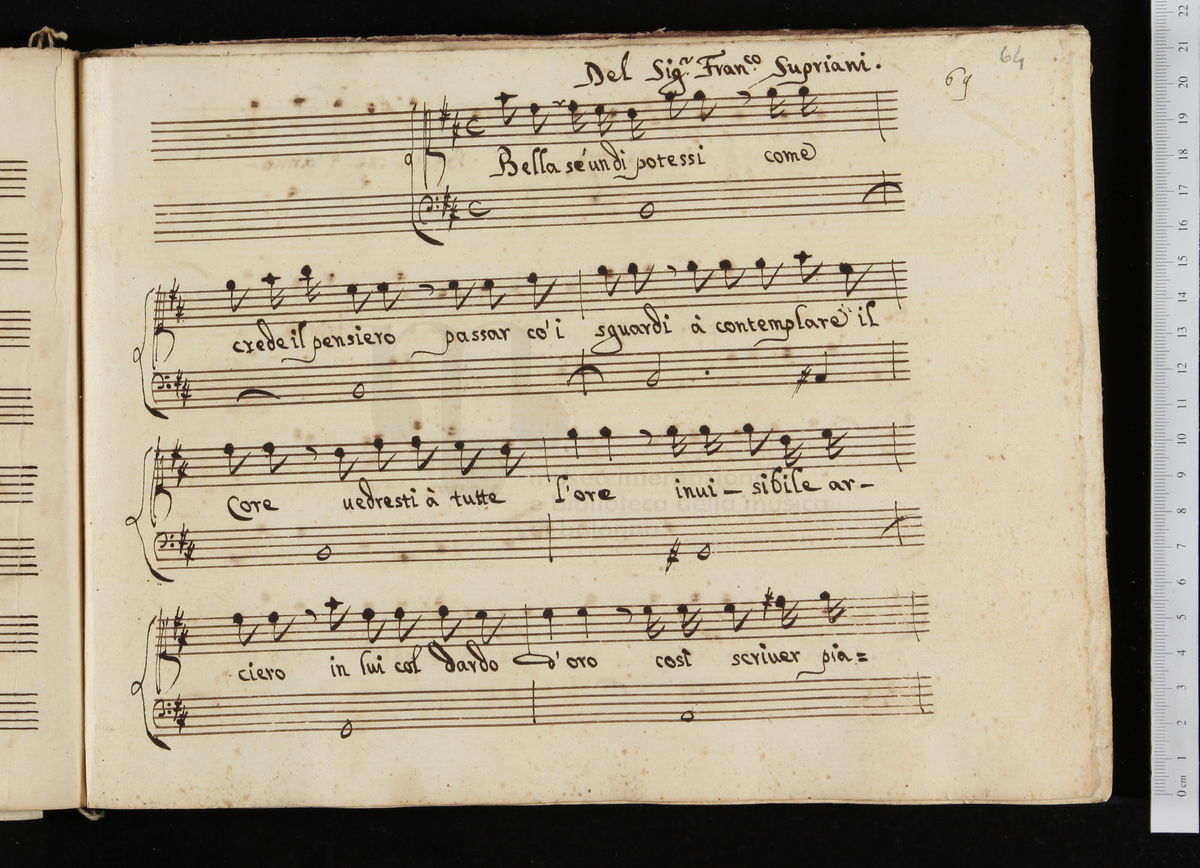 64
69
Del Sigr. Franco. Supriani.
Bella se un dì potessi come
crede il pensiero passar co'i sguardi à contemplare il
Core uedresti à tutte l'ore inui- sibile ar-
ciero in lui col dardo d'oro così scriuer pia=
22
21
20
19
18
17
16
15
14
13
12
11
10
9
8
7
6
5
4
3
2
1
0 cm